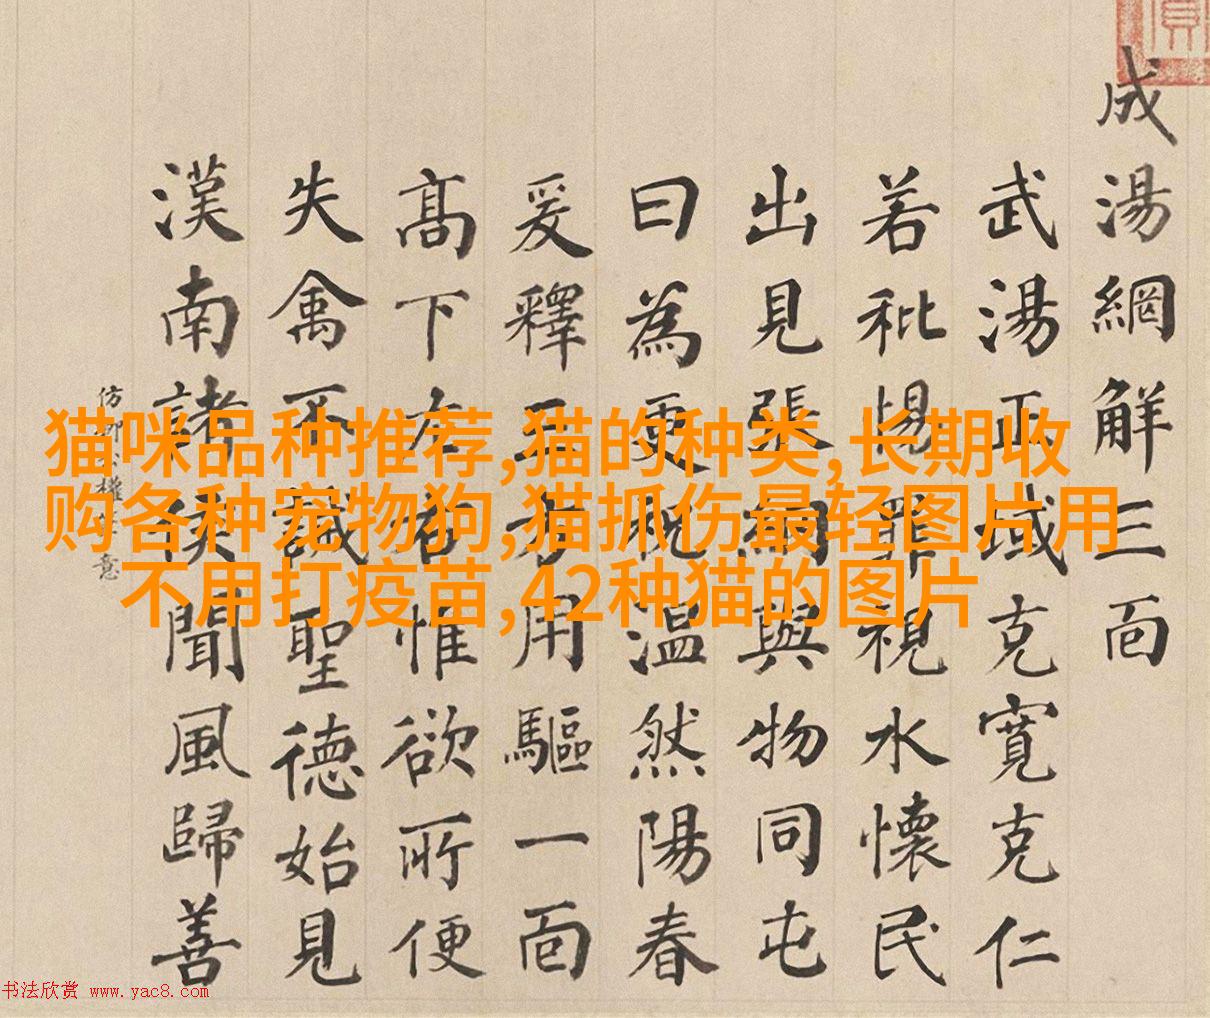 成湯網解三面
武湯正域克寬克仁
若秕惕罪視水懷民
出見張網與物同屯
曰為更祝温然陽春
爰釋三方用驅一面
髙下左右惟欲所便
失禽不誡聖德始見
漢南諸侯聞風歸善
仿柳公權意
猫咪品种推荐,猫的种类,长期收
购各种宠物狗,猫抓伤最轻图片用
不用打疫苗,42种猫的图片
书法欣赏 www.yac8.com